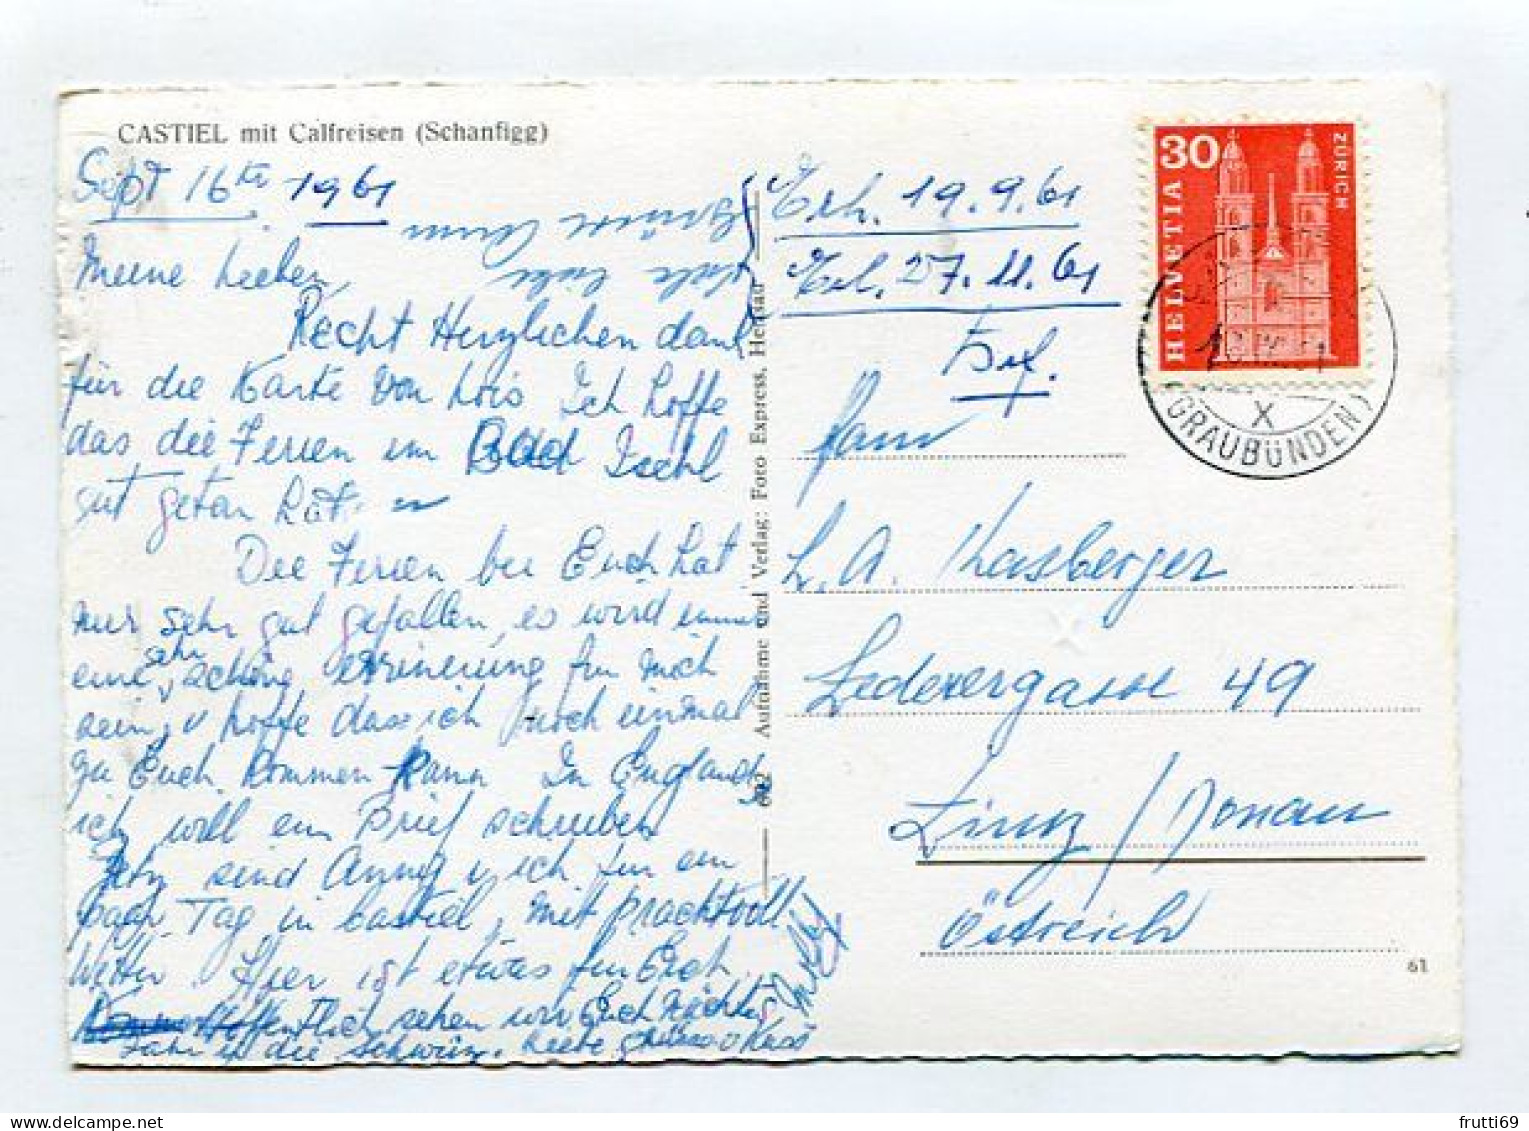 CASTIEL mit Calfreisen (Schanfigg)
Sept 16th 1961
Meine Lieben,
Recht Herzlichen dank
für die Karte von Lois Ich hoffe
das die Ferien im Bad Ischl
gut getan hat.
Die Ferien bei Euch hat
mir sehr gut gefallen, es wird immer
eine sehr schöne errinerung für mich
sein, u hoffe dass ich noch einmal
zu Euch kommen kann In England
ich will ein Brief schreiben
Jetz sind Anny u ich für ein
paar Tag in Castiel, mit prachtvoll
Wetter. Hier ist etwas für Euch.
Hoffentlich sehen wir Euch nächtes
Jahr in die Schweiz. Liebe grüsse u Kuss
Viele liebe
Grüsse Anny
602 Aufnahme und Verlag: Foto Express, Herisau
Erh. 19.9.61
Erl. 27.11.61
Brf.
HELVETIA
30
ZÜRICH
X
(GRAUBÜNDEN)
Fam
L. A. Kasberger
Lederergasse 49
Linz / Donau
Östreich
61
frutti69